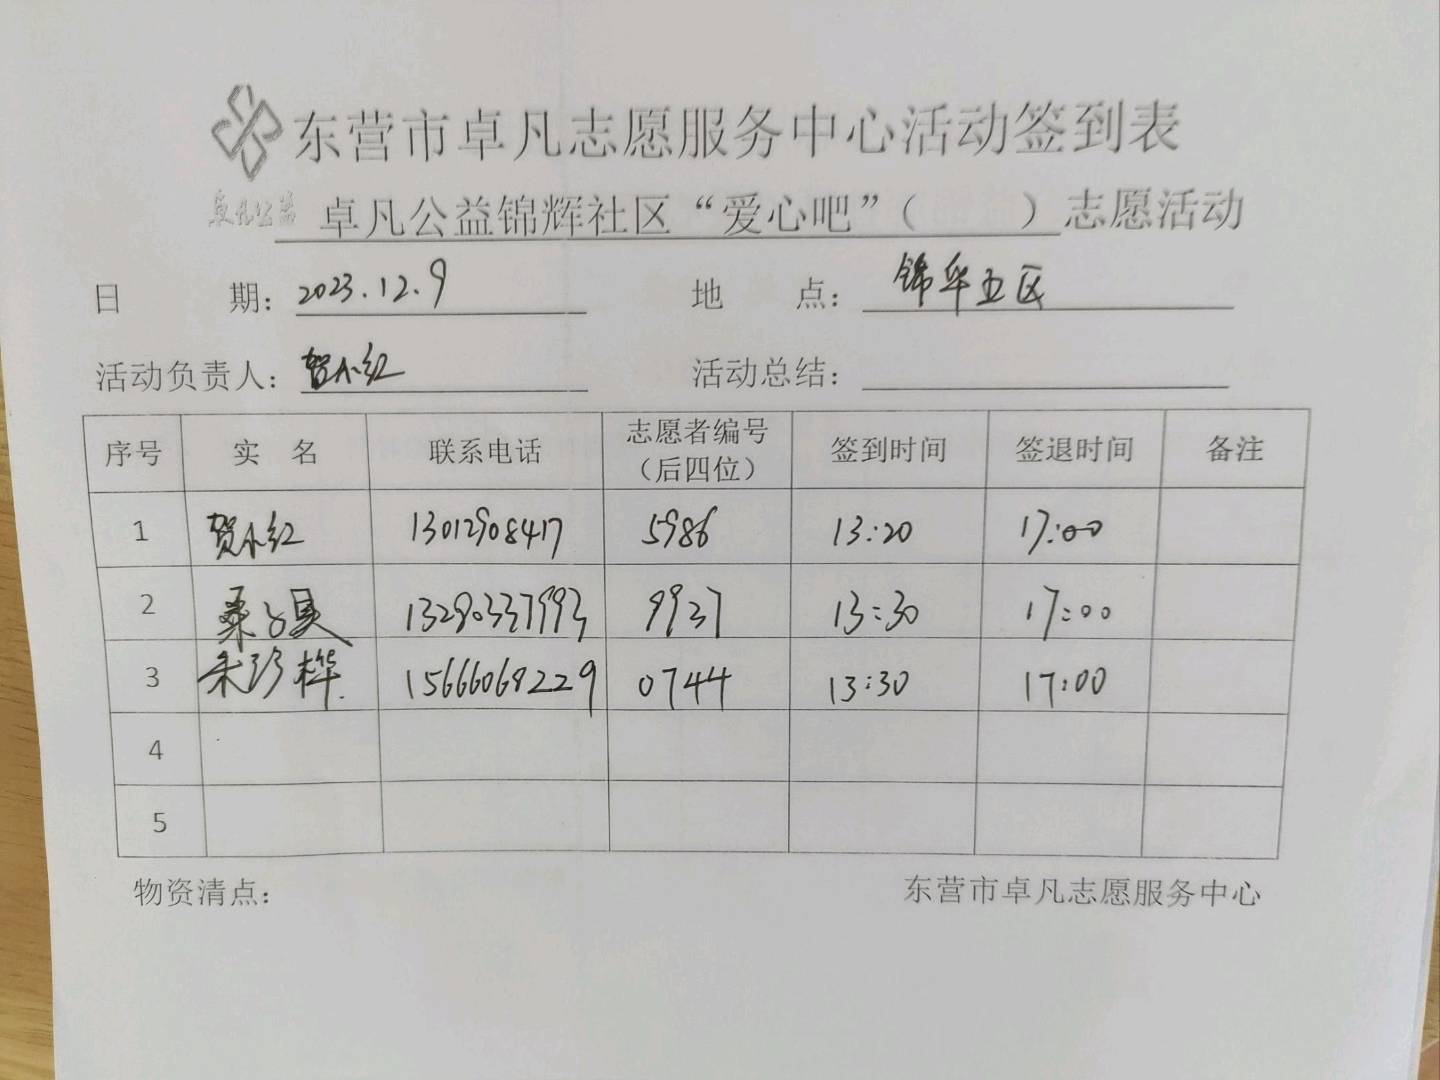 东营市卓凡志愿服务中心活动签到表
卓凡公益 卓凡公益锦辉社区“爱心吧”（ ）志愿活动
日 期：2023.12.9 地 点：锦华五区
活动负责人：贺小红 活动总结：
序号 实 名 联系电话 志愿者编号（后四位） 签到时间 签退时间 备注
1 贺小红 13012908417 5986 13:20 17:00
2 13290337993 9937 13:30 17:00
3 朱珍桦 15666068229 0744 13:30 17:00
4
5
物资清点： 东营市卓凡志愿服务中心